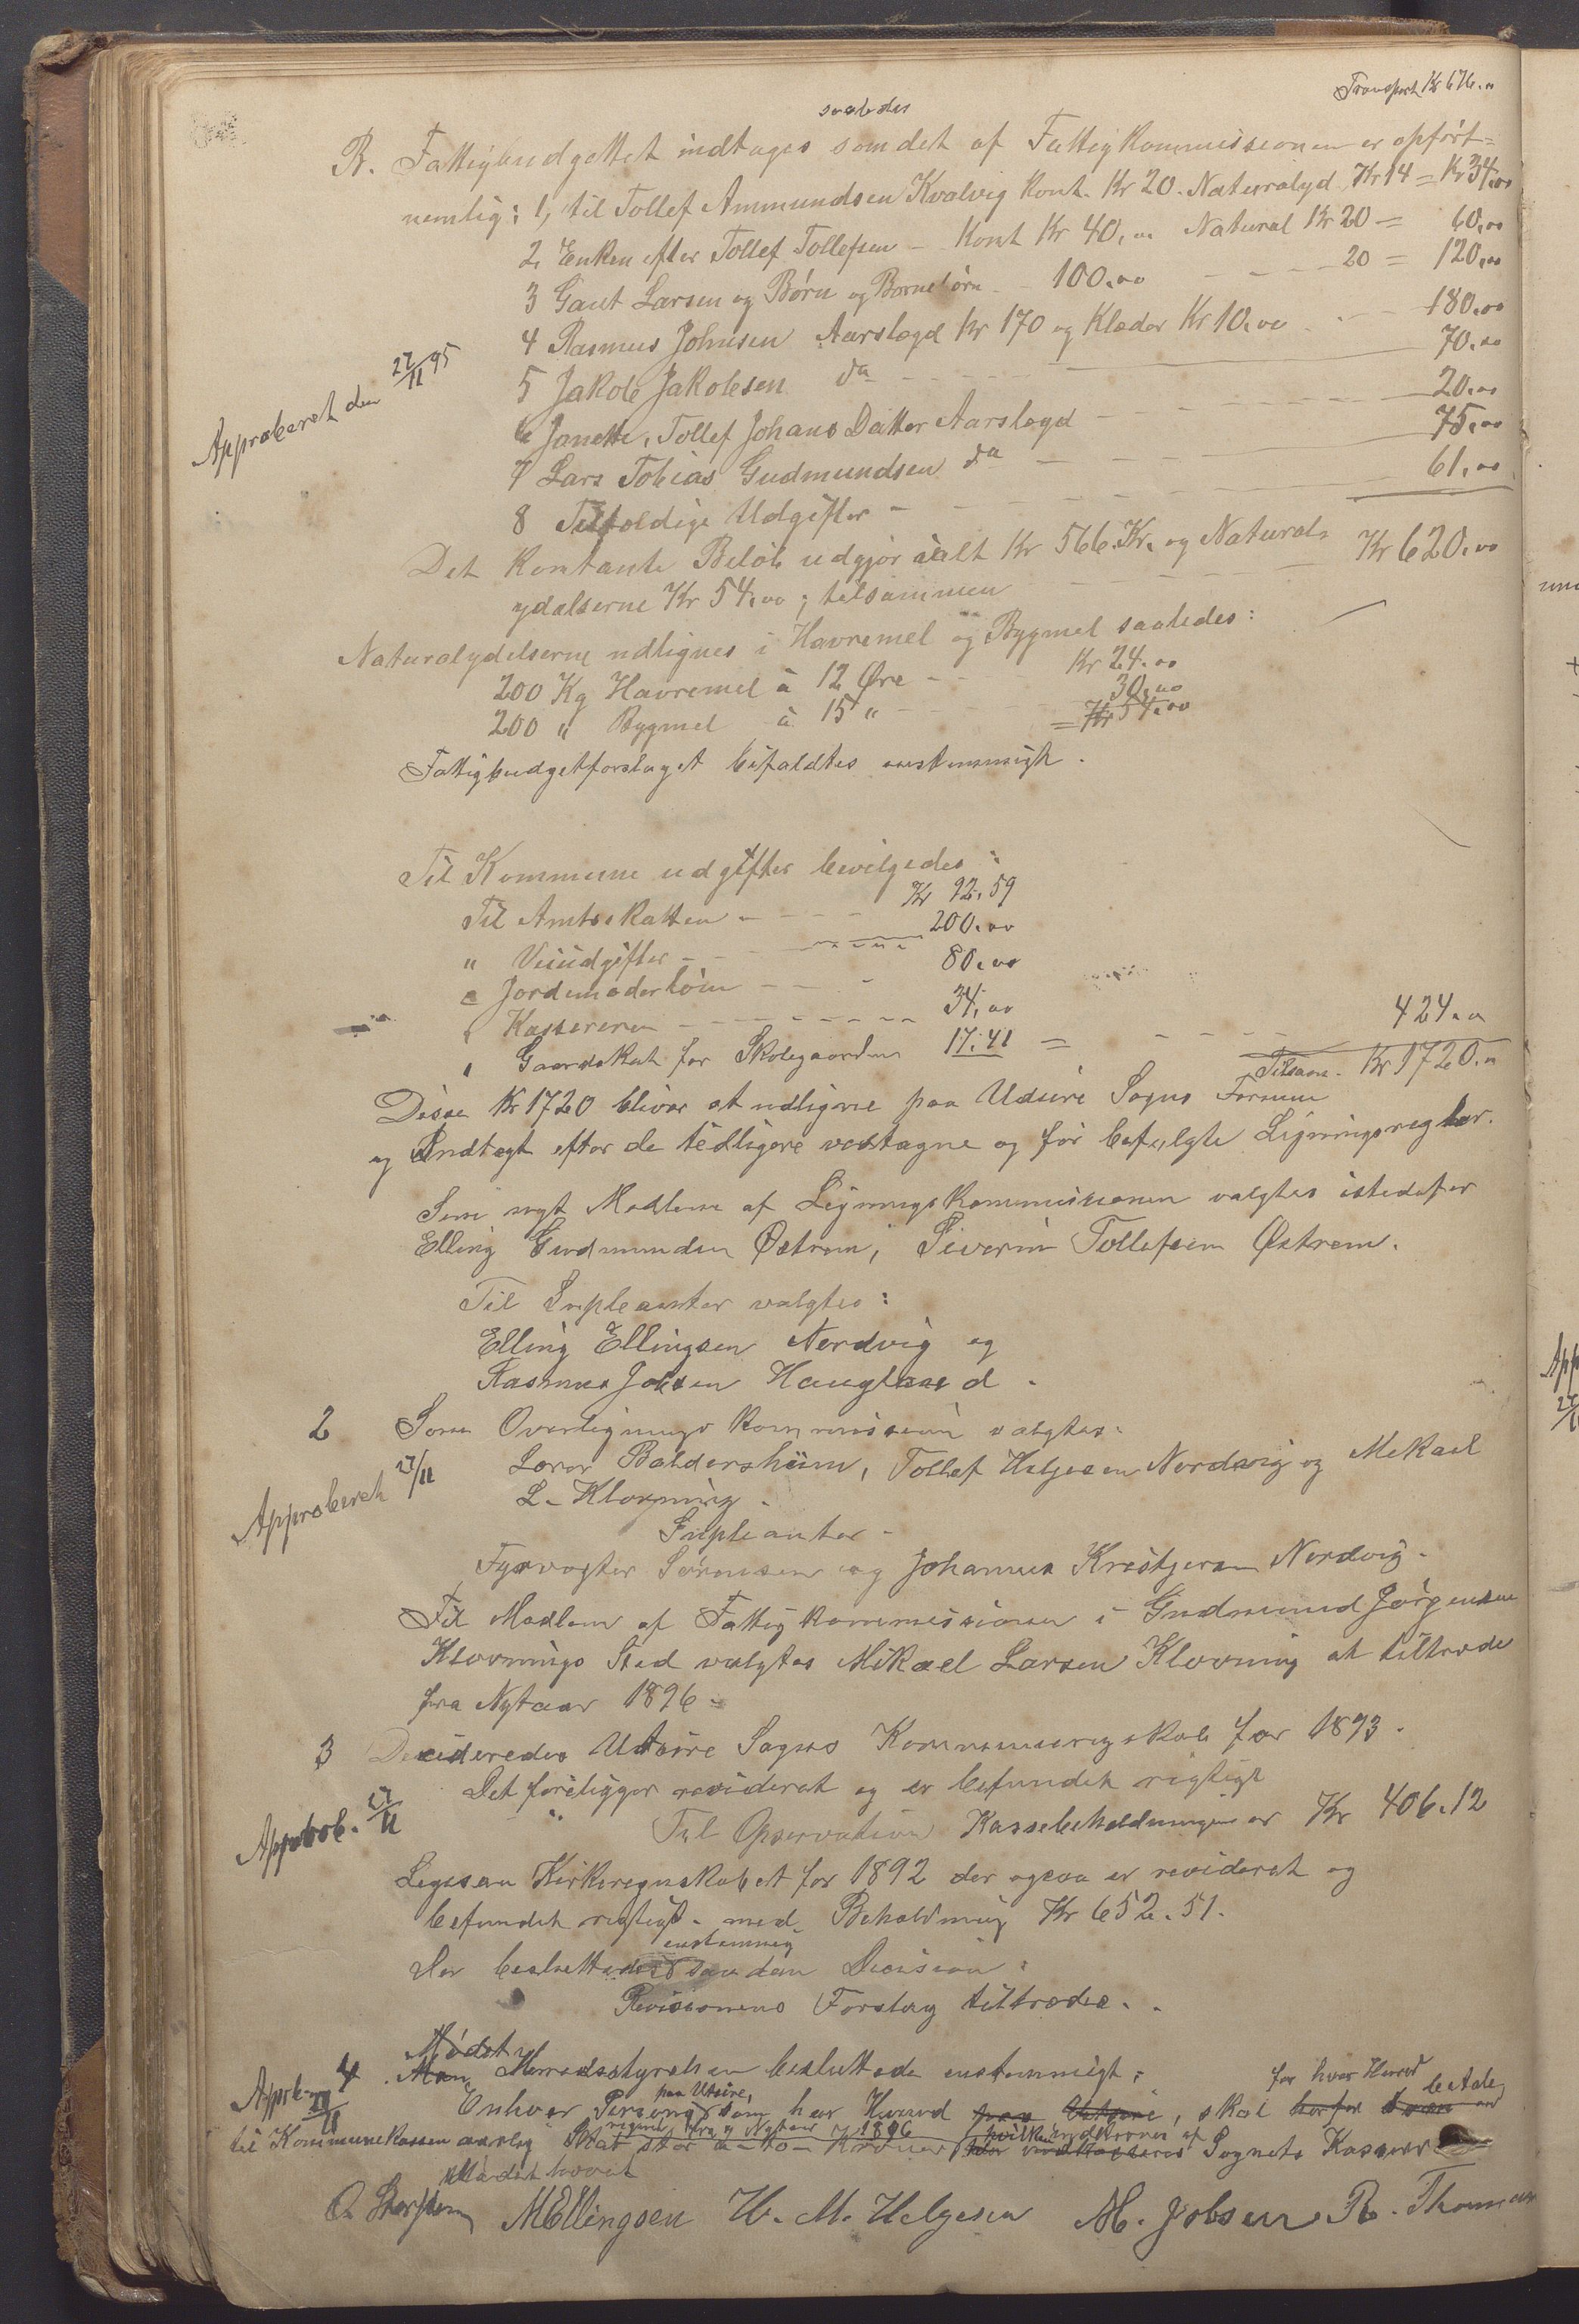 Transport Kr 676.00
saaledes
B. Fattigbudgettet indtages som det af Fattigkommissionen er opført-
nemlig: 1, til Tollef Ammundsen Kvalvig Kont. Kr 20. Naturalyd Kr 14 = Kr 34.00
2, Enken efter Tollef Tollefsen - Kont Kr 40,00 Natural Kr 20 = 60,00
3 Gaut Larsen og Børn og Børnebørn - 100.00 - - - 20 = 120,00
4 Rasmus Johnsen Aarslægd Kr 170 og Klæder Kr 10.00 - - 180.00
5 Jakob Jakobsen da - - - 70.00
Approberet den 27/11 95
6 Janette, Tollef Johans Datter Aarslægd - - - 20.00
7 Lars Tobias Gudmundsen da - - - 75,00
8 Tilfældige Udgifter - - - 61,00
Det kontante Beløb udgjør ialt Kr 566. Kr. og Natural-
ydelserne Kr 54,00; tilsammen - - - Kr 620.00
Naturalydelserne udlignes i Havremel og Bygmel saaledes:
200 Kg Havremel à 12 Øre - - Kr 24.00
200 " Bygmel à 15 " - - - 30,00
= Kr 54.00
Fattigbudgetforslaget bifaldtes enstemmigt.
Til Kommune udgifter bevilgedes:
Til Amtsskatten - - - - Kr 92,59
" Veiudgifter - - - 200.00
" Jordemoderløn - - - 80,00
" Kassereren - - - 34,00
" Gaardskat for Skolegaarden 17.41 = - - - 424.00
Tilsam. Kr 1720.00
Disse Kr 1720 bliver at udligne paa Udsire Sogns Formue
og Indtægt efter de tidligere vedtagne og før befulgte Ligningsregler.
Som nyt Medlem af Ligningskommissionen valgtes istedefor
Elling Gudmundsen Østrem, Siverin Tollefsen Østrem.
Til Supleanter valgtes:
Elling Ellingsen Nordvig og
Rasmus Johsen Haugland.
2 Som Overligningskommission valgtes:
Lærer Baldersheim, Tollef Helgesen Nordvig og Mikael
Approberet 27/11
L. Klovning.
Supleanter -
Fyrvogter Sørensen og Johannes Kristjensen Nordvig.
Til Medlem af Fattigkommissionen i Gudmund Jørgensen
Klovnings Sted valgtes Mikael Larsen Klovning at tiltræde
fra Nytaar 1896 -
3 Decideredes Utsire Sogns Kommuneregnskab for 1893.
Det foreligger revideret og er befundet rigtigt
Approb. 27/11
Til Opservation Kassebeholdningen er Kr 406.12
Ligesaa Kirkeregnskabet for 1892 der ogsaa er revideret og
befundet rigtigt - med Beholdning Kr 652.51.
enstemmig
Der besluttedes saadan Decision:
Revisionens Forslag tiltrædes.
Mødet
Approb. 27/11
4 Man Herredsstyrelsen besluttede enstemmigt:
paa Utsire,
for hver Hund
Enhver Person, som har Hund paa Utsire, skal betale
regnet fra Nytaar 1896
til Kommunekassen aarlig Skat stor 2 - to - Kroner hvilke indkræves af Sognets Kasserer
Mødet hævet
O. Storstein MEllingsen H. M. Helgesen M. Jobsen R. Thomsen